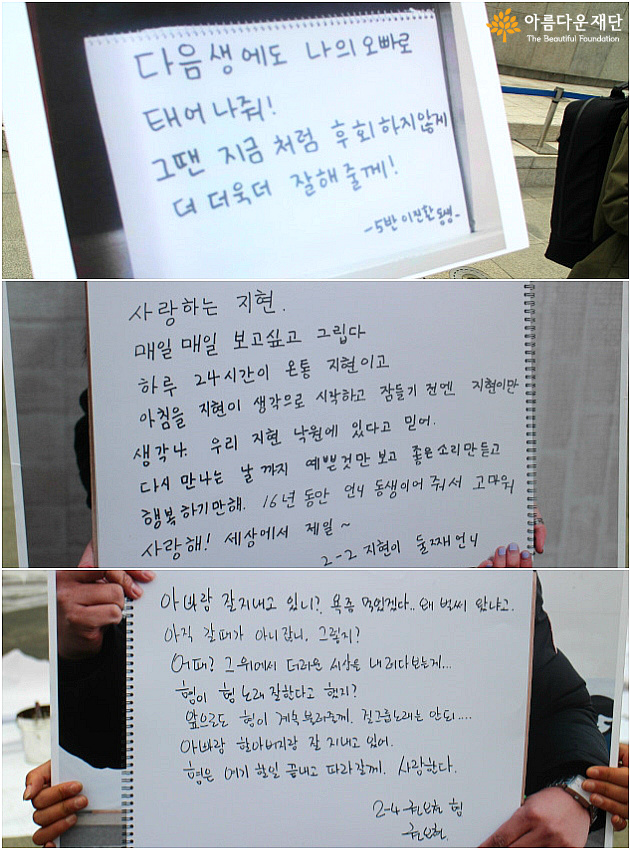 아름다운재단
The Beautiful Foundation
다음생에도 나의오빠로
태어나줘!
그땐 지금처럼 후회하지않게
더 더욱더 잘해줄께!
-5반 이진환동생-
사랑하는 지현.
매일매일 보고싶고 그립다
하루 24시간이 온통 지현이고
아침을 지현이 생각으로 시작하고 잠들기 전엔 지현이만
생각나. 우리 지현 낙원에 있다고 믿어.
다시 만나는 날까지 예쁜것만 보고 좋은소리만듣고
행복하기만해. 16년동안 언니 동생이어 줘서 고마워
사랑해! 세상에서 제일~
2-2 지현이 둘째언니
아빠랑 잘지내고 있니? 욕좀 먹었겠다.. 왜 벌써 왔냐고.
아직 갈때가 아니잖니. 그렇지?
어때? 그위에서 더러운 시상을 내려다보는게...
형이 형 노래 잘한다고 했지?
앞으로도 형이 계속 불러줄께. 걸그룹노래는 안되....
아빠랑 할아버지랑 잘 지내고 있어.
형은 여기 할일 끝내고 따라갈께. 사랑한다.
2-4 형